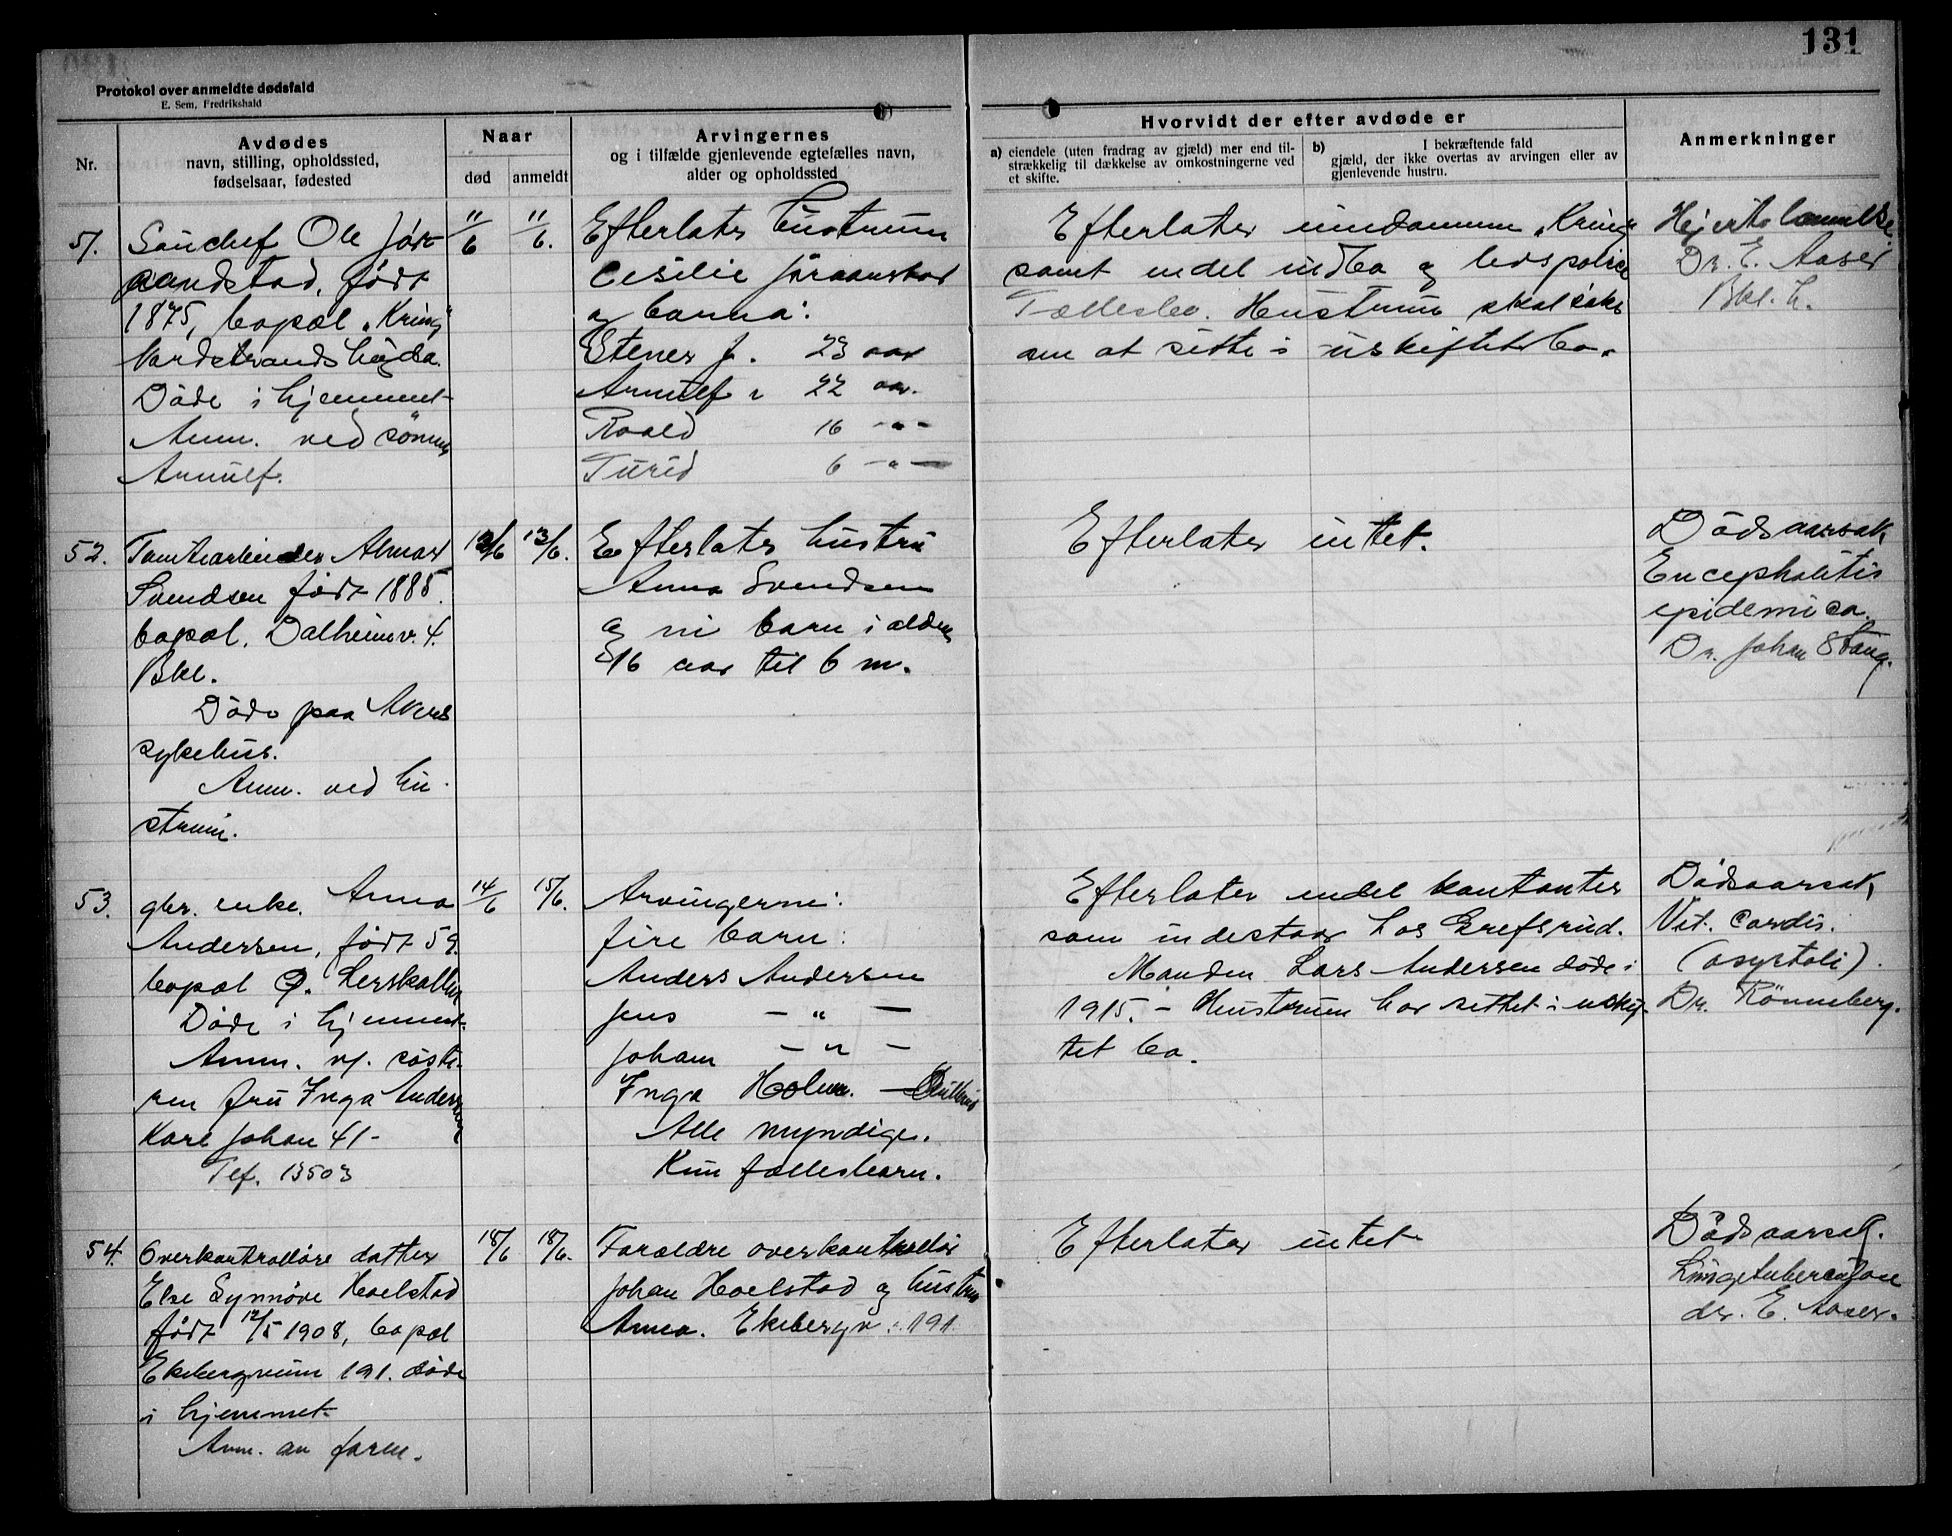 131
Protokol over anmeldte dødsfald
E. Sem, Fredrikshald
Nr.
Avdødes
navn, stilling, opholdssted,
fødselsaar, fødested
Naar
død
anmeldt
Arvingernes
og i tilfælde gjenlevende egtefælles navn,
alder og opholdssted
Hvorvidt der efter avdøde er
a) eiendele (uten fradrag av gjæld) mer end til-
strækkelig til dækkelse av omkostningerne ved
et skifte.
b) I bekræftende fald
gjæld, der ikke overtas av arvingen eller av
gjenlevende hustru.
Anmerkninger
51.
Ole Jör-
aandstad, født
1875, bopæl "Kring"
Nordstrandshögda.
Døde i hjemmet
Anm. ved sönnen
Arnulf.
11/6
11/6.
Efterlater hustruen
Cesilie
og barna:
Stener J. 23 aar
Arnulf " 22 aar.
Roald 16 -"-
Turid 6 -"-
Efterlater eiendommen "Kring"
samt endel indbo og livspolice
Fællesbo. Hustruen skal søke
om at sitte i uskiftet bo.
Hjertelammelse.
Dr. E. Aaser
Bkl. h.
52.
Almar
Svendsen født 1885.
bopæl. Dalheimv. 4.
Bkl.
Døde paa Akers
sykehus.
Anm. ved hu-
struen.
12/6
13/6.
Efterlater hustru
Anna Svendsen
og ni barn i alderen
16 aar til 6 m.
Efterlater intet.
Dödsaarsak,
Encephalitis
epidemica.
Dr. Johan Stang.
53.
gbr. enke. Anna
Andersen, født 59.
bopæl Ø.
Døde i hjemmet.
Anm. v/ söste-
ren fru Inga Andersen
Karl Johan 41-
Tlf. 13503
14/6
15/6.
Arvingerne:
fire barn:
Anders Andersen
Jens - " -
Johan - " -
Inga Holm.
Alle myndige.
Kun fællesbarn.
Efterlater endel kontanter
som indestaar hos Grefsrud.
Manden Lars Andersen døde i
1915. - Hustruen har sittet i uskif-
tet bo.
Dödsaarsak,
Vit. cordis.
(asystoli).
Dr. Rönneberg.
54.
Overkontrollörs datter
Else Synnöve Hoelstad
født 12/5 1908, bopæl
Ekebergveien 191. døde
i hjemmet
Anm. av faren.
18/6
18/6.
Forældre overkontrollör
Johan Hoelstad og hustru
Anna. Ekebergv. 191.
Efterlater intet
Dödsaarsak.
Lungetuberculose
dr. E. Aaser.